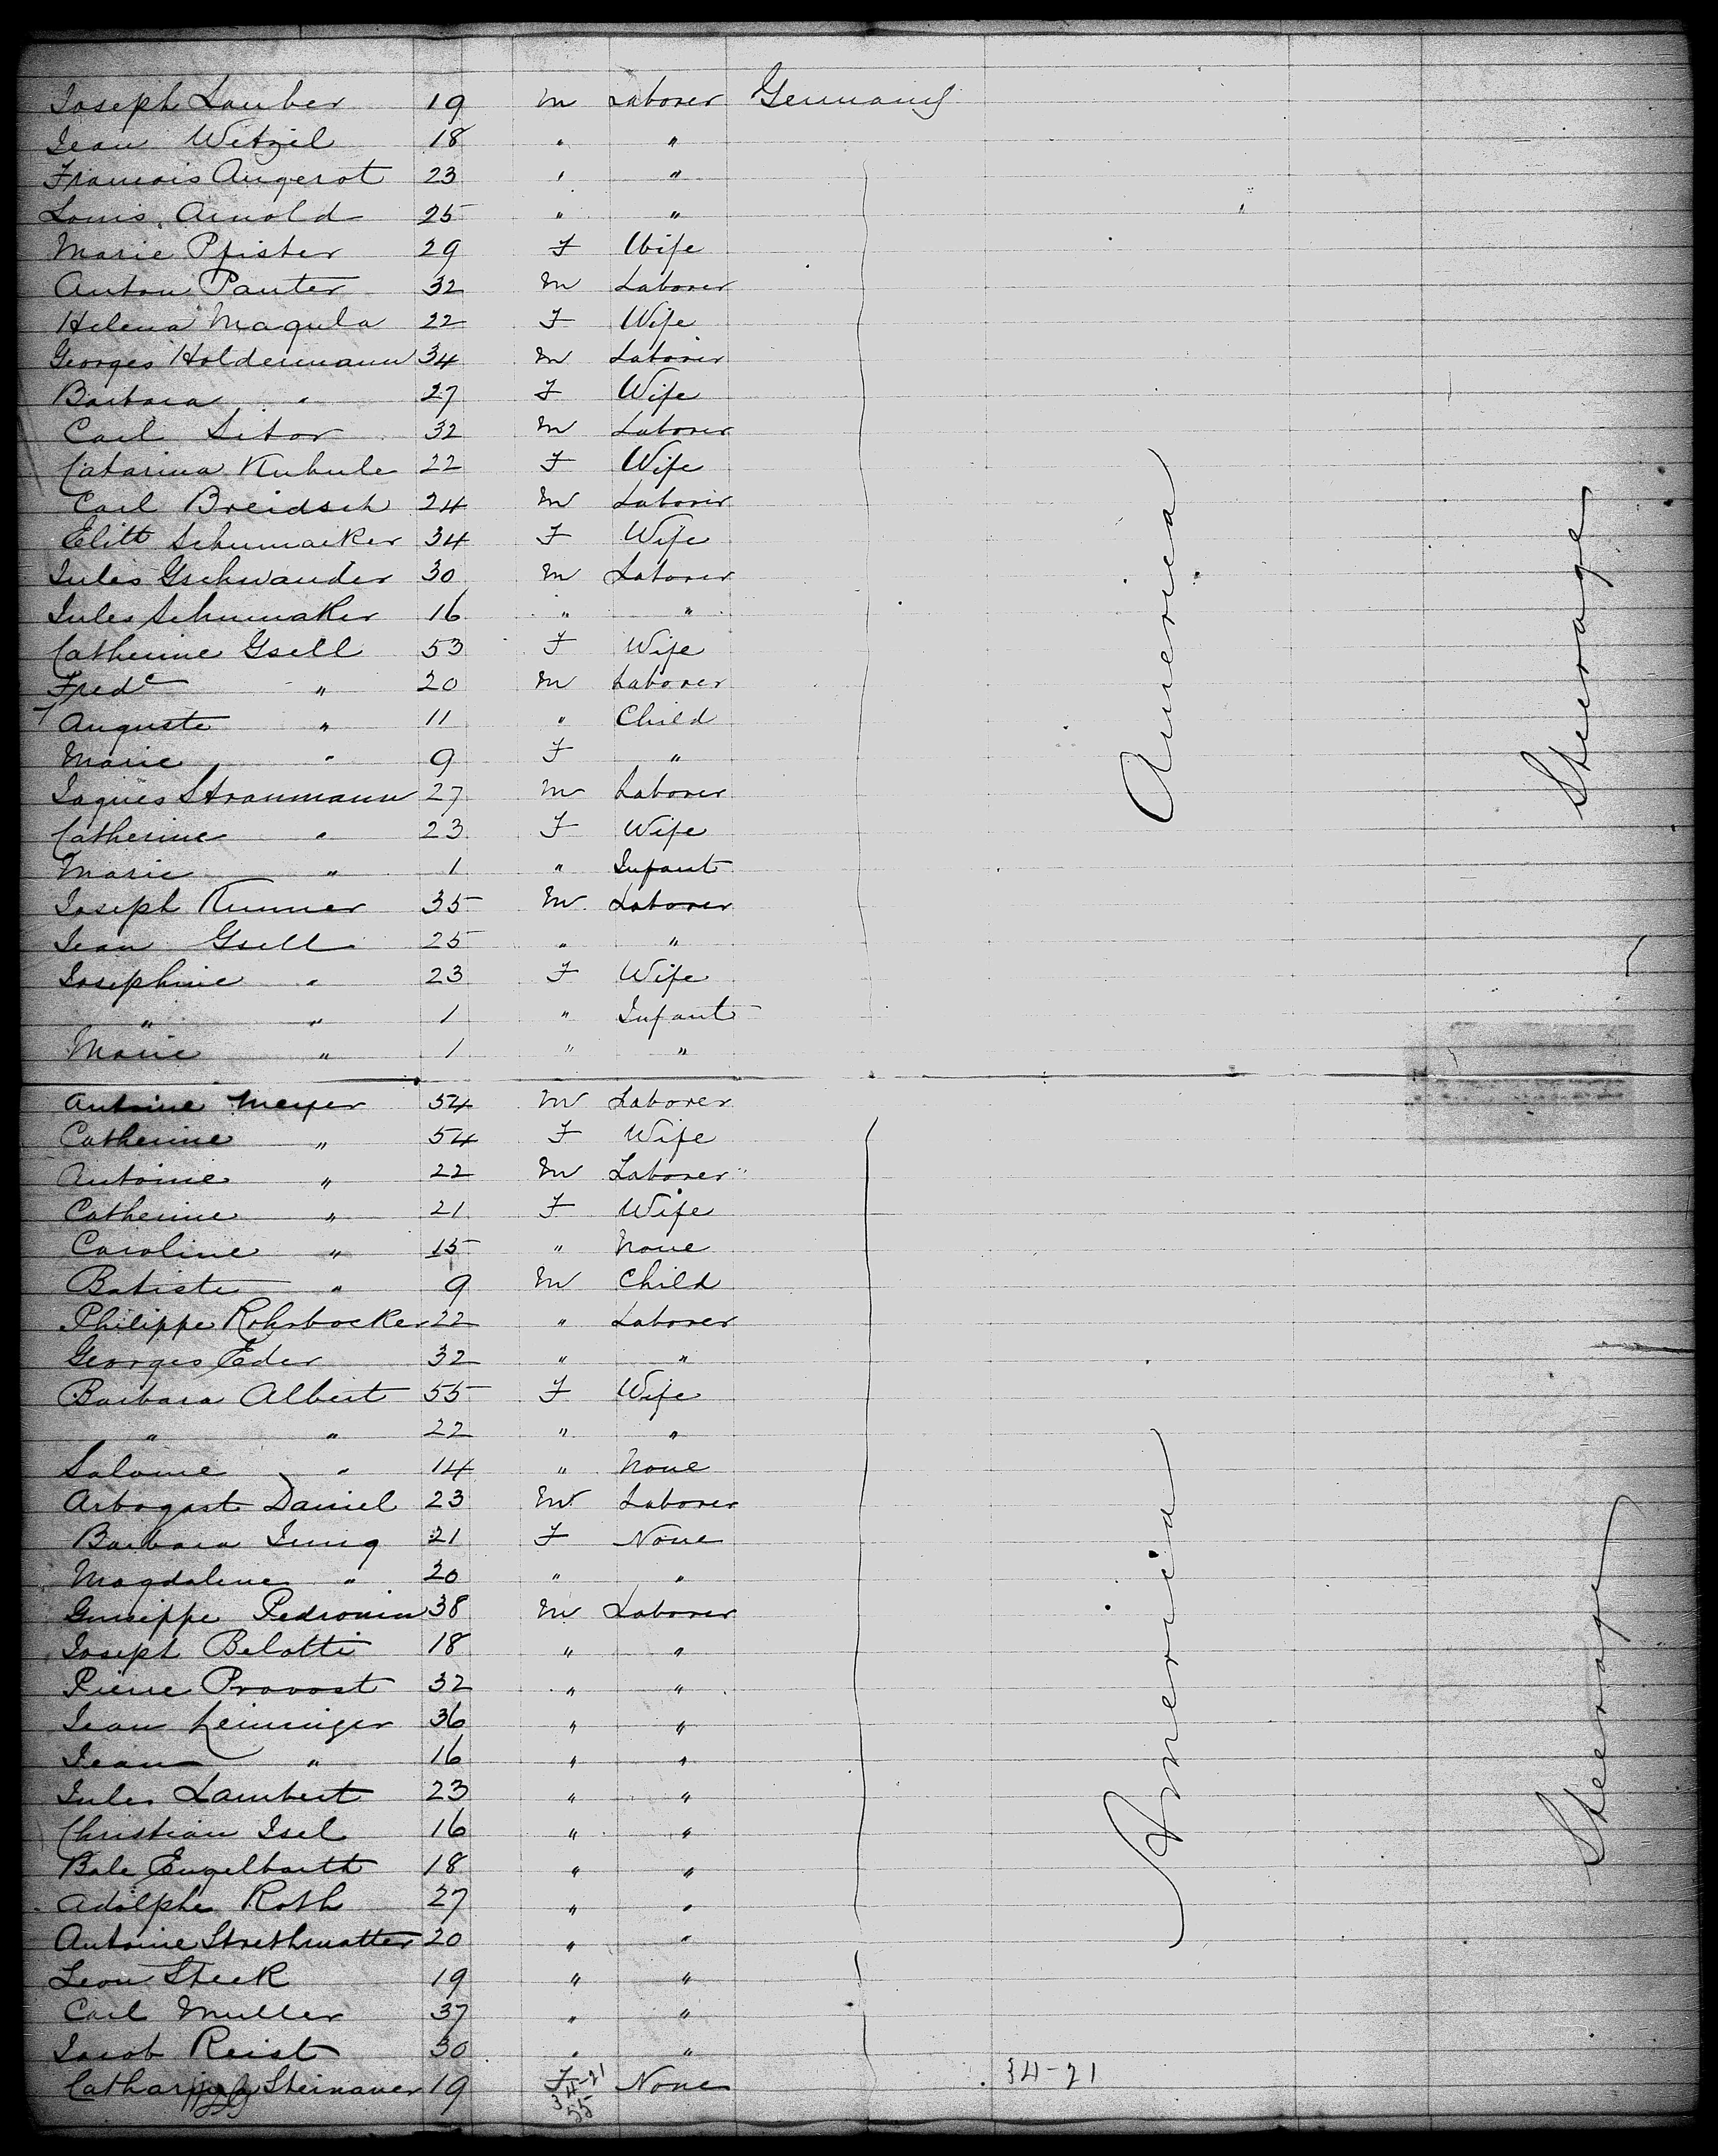 Joseph Lauber 19 M Laborer Germany
Jean Witzil 18 " "
Francois Angerot 23 " "
Louis Arnold 25 " "
Marie Pfister 29 F Wife
Anton Panter 32 M Laborer
Helena Magula 22 F Wife
Georges Holdermann 34 M Laborer
Barbara " 27 F Wife
Carl Sitor 32 M Laborer
Catarina Kubule 22 F Wife
Carl Breidsch 24 M Laborer
Elitt Schumacker 34 F Wife
Jules Gschwander 30 M Laborer
Jules Schumaker 16 " "
Catherine Gsell 53 F Wife
Fredc " 20 M Laborer
Auguste " 11 " Child
Marie " 9 F "
Jaques Straumann 27 M Laborer
Catherine " 23 F Wife
Marie " 1 " Infant
Joseph Kummer 35 M Laborer
Jean Gsell 25 " "
Josephine " 23 F Wife
" " 1 " Infant
Marie " 1 " "
America
Steerage
Antoine Meyer 54 M Laborer
Catherine " 54 F Wife
Antoine " 22 M Laborer
Catherine " 21 F Wife
Caroline " 15 " None
Batiste " 9 M Child
Philippe Rohrbacker 22 " Laborer
Georges Eder 32 " "
Barbara Albert 55 F Wife
" " 22 " "
Salome " 14 " None
Arbogast Daniel 23 M Laborer
Barbara Jung 21 F None
Magdalene " 20 " "
Guiseppe Pedronin 38 M Laborer
Joseph Belotti 18 " "
Pierre Provost 32 " "
Jean Leininger 36 " "
Jean " 16 " "
Jules Lambert 23 " "
Christian Isel 16 " "
Bale Engelbarth 18 " "
Adolphe Roth 27 " "
Antoine Strethmatter 20 " "
Leon Steck 19 " "
Carl Muller 37 " "
Jacob Reist 30 " "
Catharina Steinauer 19 F None
34-21
34-21
55
America
Steerage